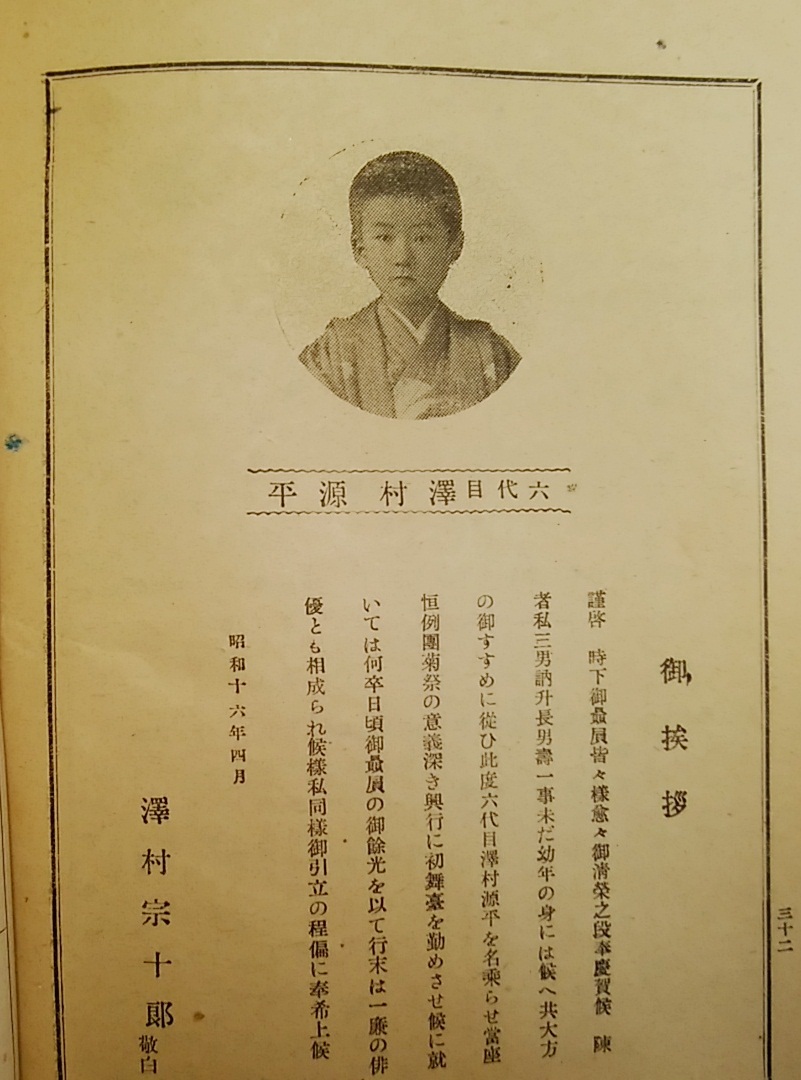 六代目澤村源平
御挨拶
謹啓　時下御最屓皆々樣愈々御淸榮之段奉慶賀候　陳
者私三男訥升長男壽一事未だ幼年の身には候へ共大方
の御すすめに從ひ此度六代目澤村源平を名乘らせ當座
恒例團菊祭の意義深き興行に初舞臺を勤めさせ候に就
いては何卒日頃御最屓の御餘光を以て行末は一廉の俳
優とも相成られ候樣私同樣御引立の程偏に奉希上候
昭和十六年四月
澤村宗十郞敬白
三十二